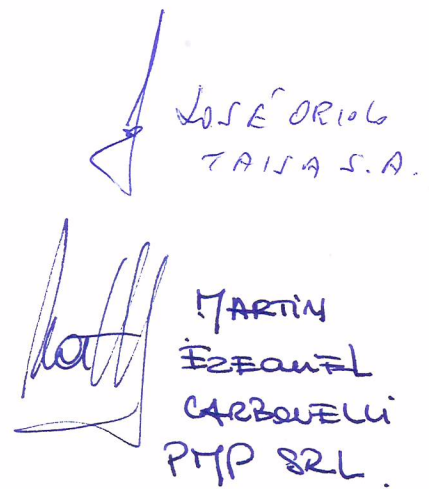 JOSÉ ORIOLO
TAISA S.A.
MARTIN
EZEQUIEL
CARBONELLI
PMP SRL.